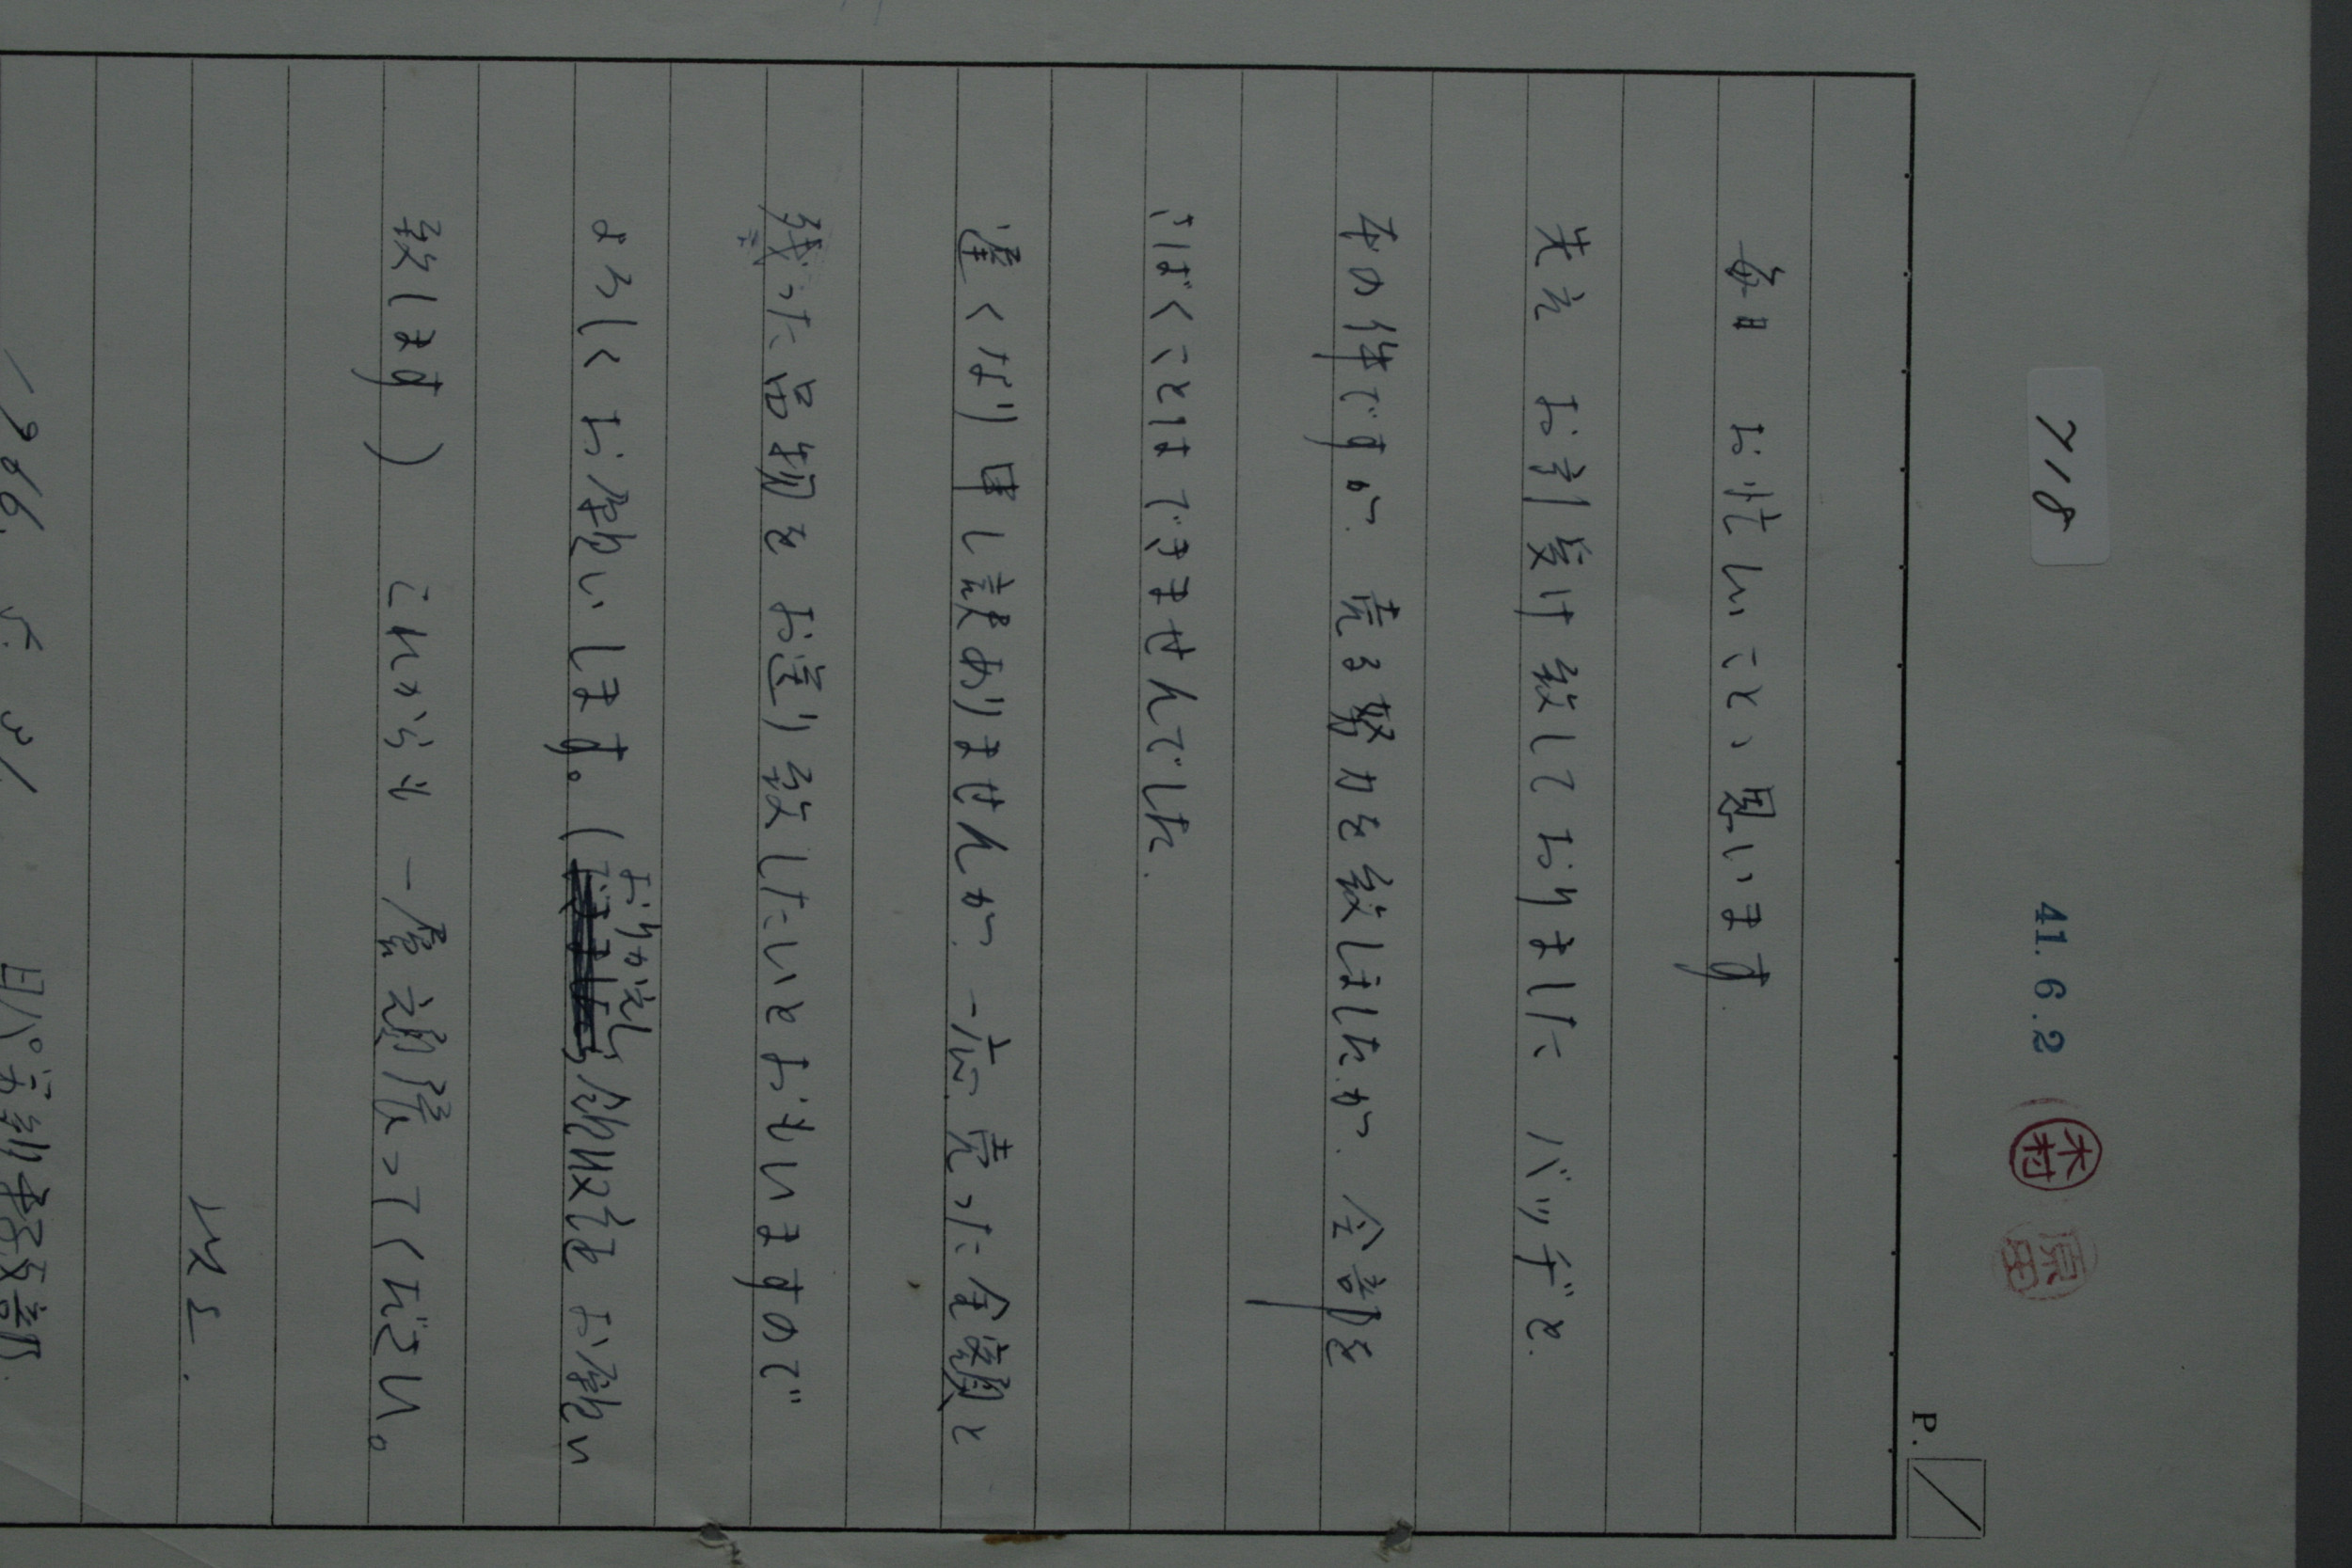 718
41.6.2
木村
原田
P. 1
毎日 お忙しいことゝ思います.
先に お引受け致しておりました バッヂと.
本の件ですが. 売る努力を致しましたが. 全部を
さばくことはできませんでした.
遅くなり申し訳ありませんが. 一応. 売った金額と
残った品物を お送り致したいとおもいますので
よろしくお願いします。(お手数ですが 領収証 お願い
致します) これからも 一層 頑張ってください。
以上.
1966. 5. 31